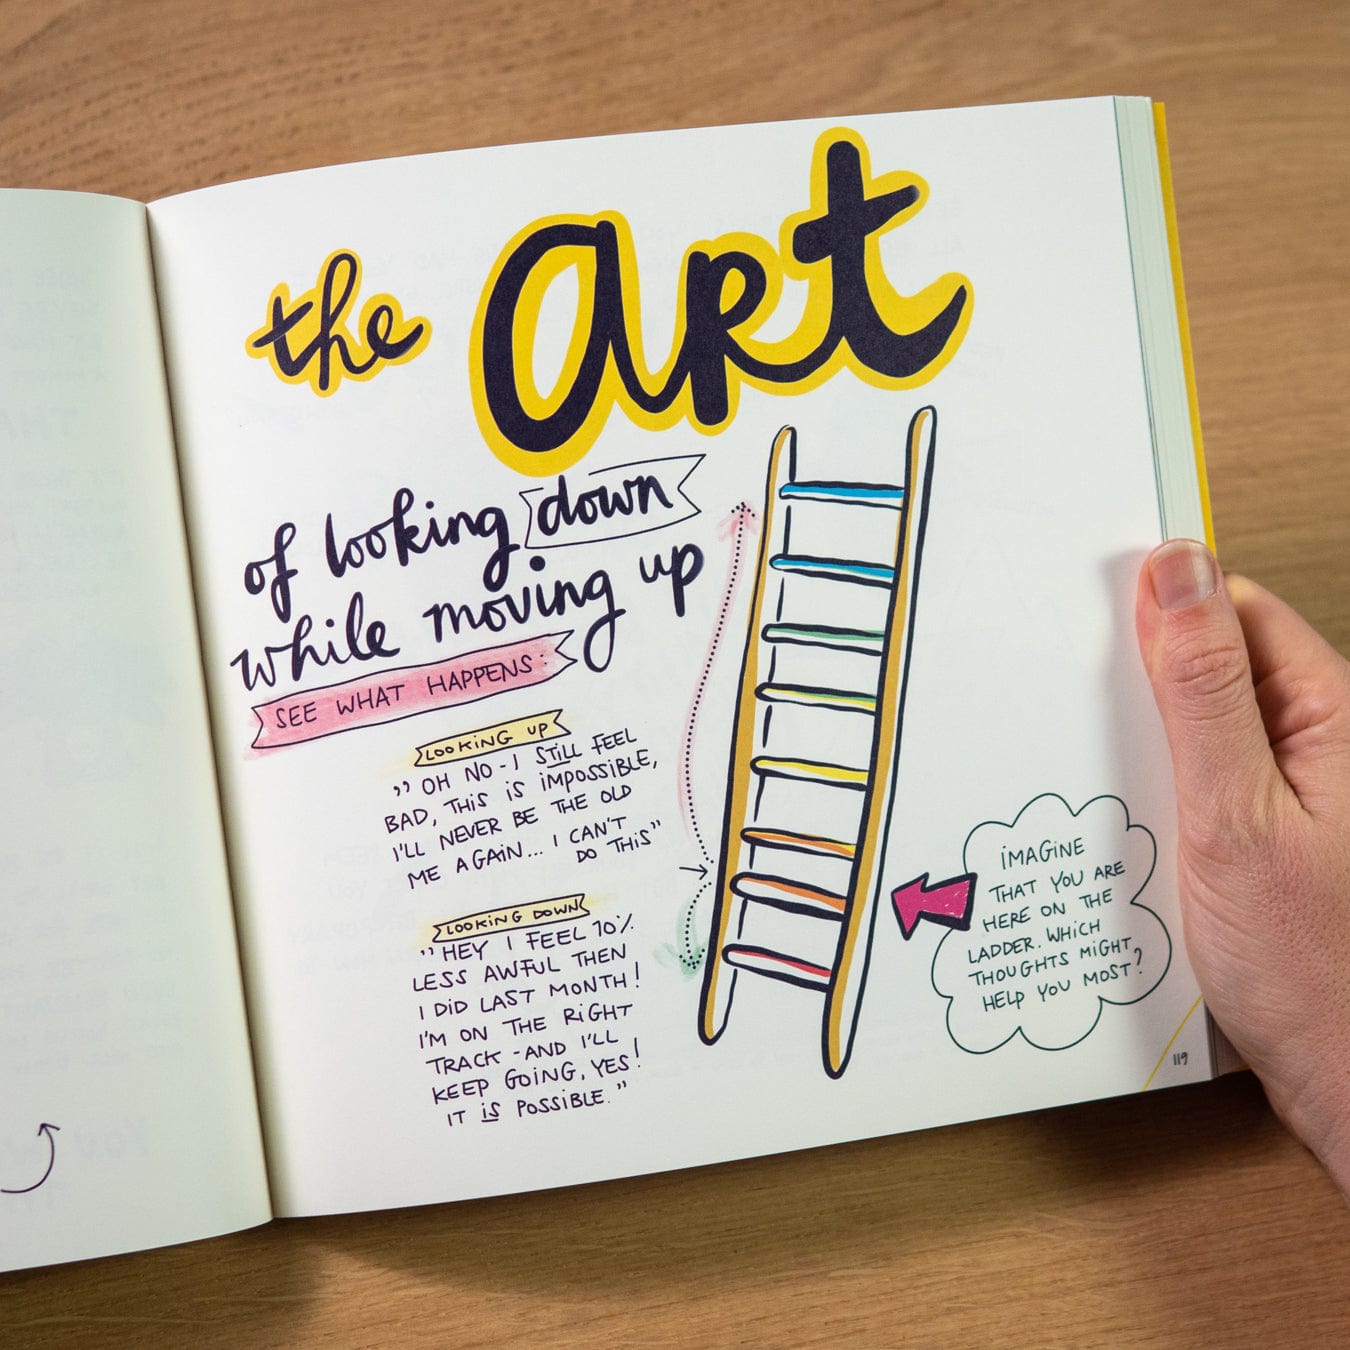 the art
of looking down
while moving up
SEE WHAT HAPPENS:
LOOKING UP
,, OH NO - I STILL FEEL
BAD, THIS IS IMPOSSIBLE,
I'LL NEVER BE THE OLD
ME AGAIN... I CAN'T
DO THIS"
LOOKING DOWN
,, HEY I FEEL 10%
LESS AWFUL THEN
I DID LAST MONTH!
I'M ON THE RIGHT
TRACK - AND I'LL
KEEP GOING, YES!
IT IS POSSIBLE."
IMAGINE
THAT YOU ARE
HERE ON THE
LADDER. WHICH
THOUGHTS MIGHT
HELP YOU MOST?
119